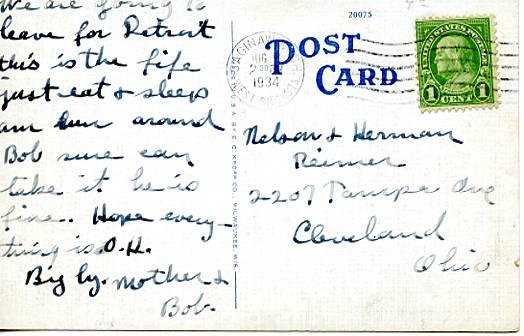 We are going to
leave for Detroit
this is the life
just eat & sleep
an run around
Bob sure can
take it he is
fine. Hope every-
thing is O.K.
By by. Mother &
Bob.
20075
POST
CARD
SAGINAW
AUG
2
1934
WEST SIDE STA.
MADE IN U.S.A. BY E. C. KROPP CO. MILWAUKEE, WIS.
UNITED STATES POSTAGE
1 CENT 1
Nelson & Herman
Reimer
2207 Tampa Ave
Cleveland
Ohio